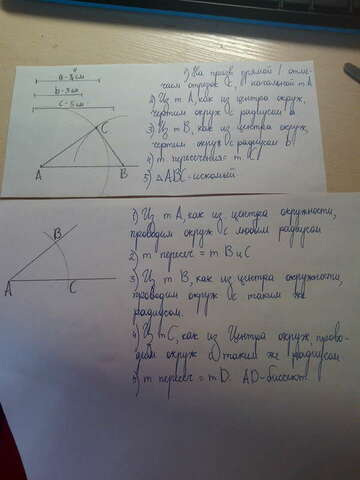 a - 4 см
b - 3 см
c - 5 см
A
C
B
1) На произв прямой l отме-
чаем отрезок C, начальной т A
2) Из т A, как из центра окруж,
чертим окруж с радиусом a
3) Из т B, как из центра окруж,
чертим окруж с радиусом b
4) т пересечения = т C
5) △ABC - искомый
A
B
C
1) Из т A, как из центра окружности,
проводим окруж с любым радиусом
2) т пересеч = т B и C
3) Из т B, как из центра окружности,
проводим окруж с таким же
радиусом.
4) Из т C, как из центра окруж, прово-
дим окруж с таким же радиусом
5) т пересеч = т D. AD - биссект.